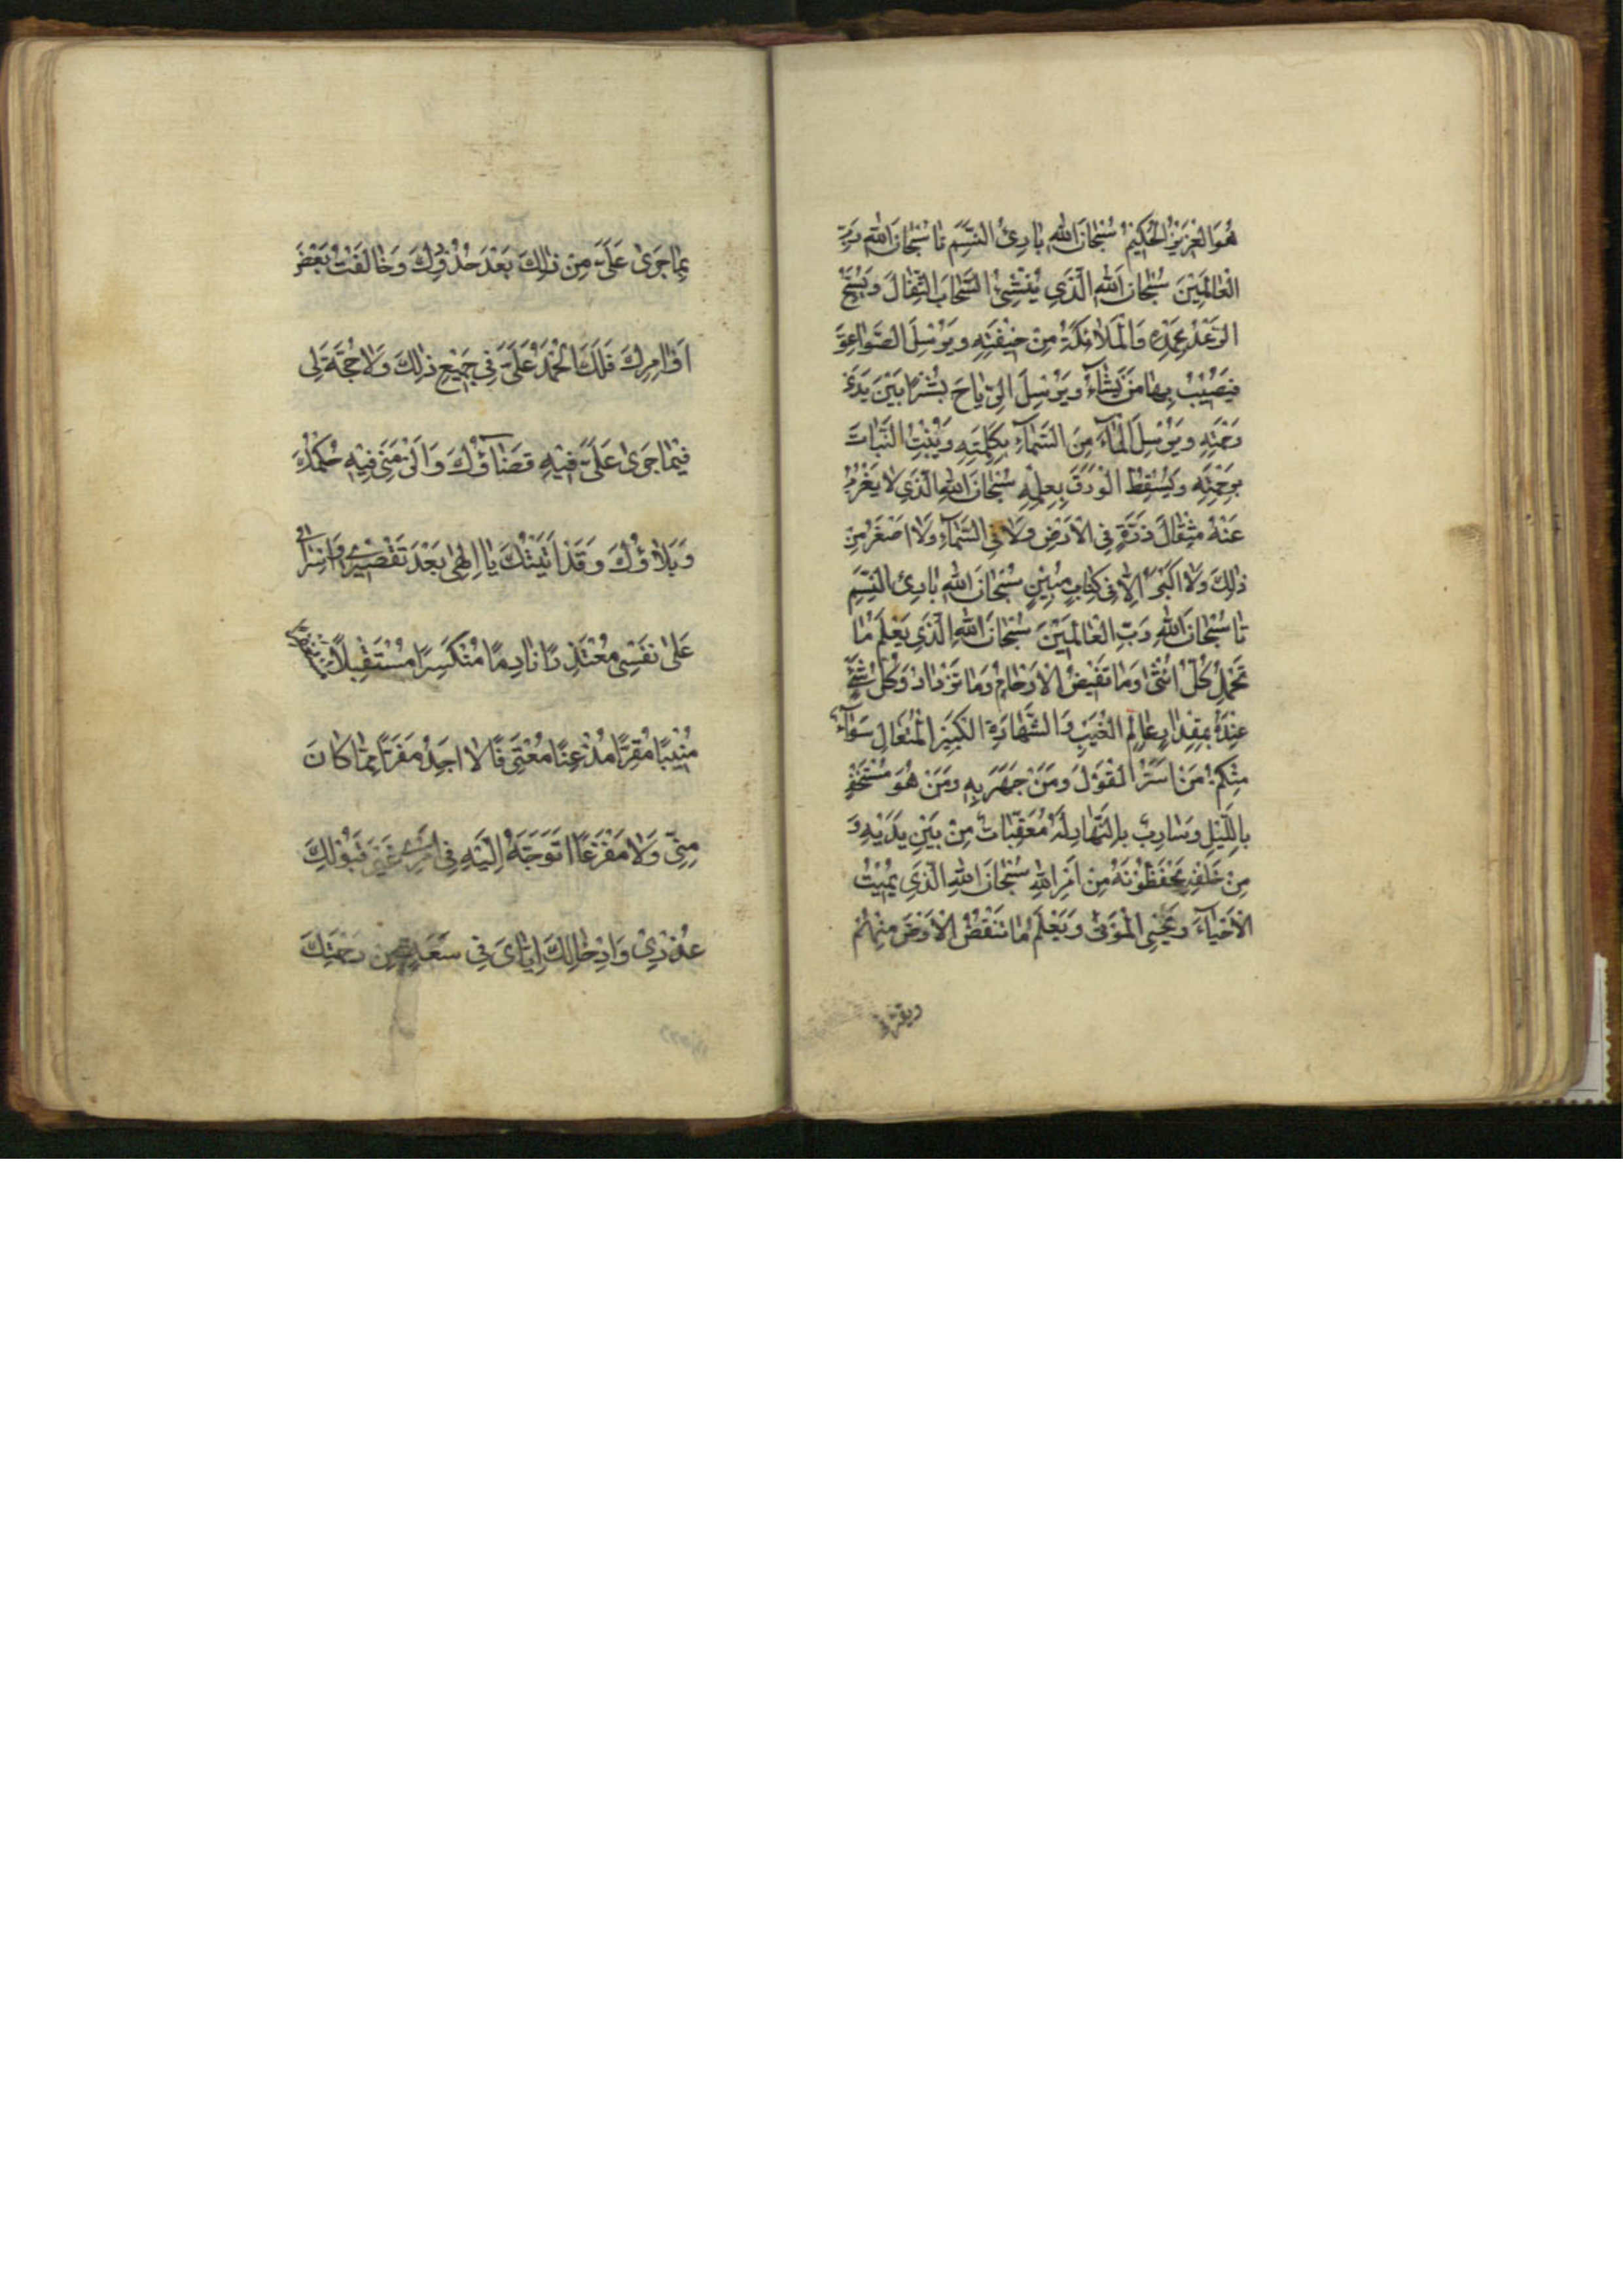 هُوَ الْعَزِيزُ الْحَكِيمُ سُبْحَانَ اللهِ بَارِئِ النَّسَمِ تا سُبْحَانَ اللهِ رَبِّ
الْعَالَمِينَ سُبْحَانَ اللهِ الَّذِي يُنْشِئُ السَّحَابَ الثِّقَالَ وَيُسَبِّحُ
الرَّعْدُ بِحَمْدِهِ وَالْمَلَائِكَةُ مِنْ خِيفَتِهِ وَيُرْسِلُ الصَّوَاعِقَ
فَيُصِيبُ بِهَا مَنْ يَشَاءُ وَيُرْسِلُ الرِّيَاحَ بُشْرًا بَيْنَ يَدَيْ
رَحْمَتِهِ وَيُرْسِلُ الْمَاءَ مِنَ السَّمَاءِ بِكَلِمَتِهِ وَيُنْبِتُ النَّبَاتَ
وَيُسْقِطُ الْوَرَقَ بِعِلْمِهِ سُبْحَانَ اللهِ الَّذِي لَا يَعْزُبُ
عَنْهُ مِثْقَالُ ذَرَّةٍ فِي الْأَرْضِ وَلَا فِي السَّمَاءِ وَلَا أَصْغَرُ مِنْ
ذَٰلِكَ وَلَا أَكْبَرُ إِلَّا فِي كِتَابٍ مُبِينٍ سُبْحَانَ اللهِ بَارِئِ النَّسَمِ
تا سُبْحَانَ اللهِ رَبِّ الْعَالَمِينَ سُبْحَانَ اللهِ الَّذِي يَعْلَمُ مَا
تَحْمِلُ كُلُّ أُنْثَى وَمَا تَغِيضُ الْأَرْحَامُ وَمَا تَزْدَادُ وَكُلُّ شَيْءٍ
عِنْدَهُ بِمِقْدَارٍ عَالِمُ الْغَيْبِ وَالشَّهَادَةِ الْكَبِيرُ الْمُتَعَالِ سَوَاءٌ
مِنْكُمْ مَنْ أَسَرَّ الْقَوْلَ وَمَنْ جَهَرَ بِهِ وَمَنْ هُوَ مُسْتَخْفٍ
بِاللَّيْلِ وَسَارِبٌ بِالنَّهَارِ لَهُ مُعَقِّبَاتٌ مِنْ بَيْنِ يَدَيْهِ وَ
مِنْ خَلْفِهِ يَحْفَظُونَهُ مِنْ أَمْرِ اللهِ سُبْحَانَ اللهِ الَّذِي يُمِيتُ
الْأَحْيَاءَ وَيُحْيِي الْمَوْتَى وَيَعْلَمُ مَا تَنْقُصُ الْأَرْضُ مِنْهُمْ
بِمَا جَرَى عَلَيَّ مِنْ ذَٰلِكَ بَعْدَ حُدُودِكَ وَخَالَفْتُ بَعْضَ
أَوَامِرِكَ فَلَكَ الْحَمْدُ عَلَيَّ فِي جَمِيعِ ذَٰلِكَ وَلَا حُجَّةَ لِي
فِيمَا جَرَى عَلَيَّ فِيهِ قَضَاؤُكَ وَأَلْزَمَنِي فِيهِ حُكْمُكَ
وَبَلَاؤُكَ وَقَدْ أَتَيْتُكَ يَا إِلَٰهِي بَعْدَ تَقْصِيرِي وَإِسْرَافِي
عَلَى نَفْسِي مُعْتَذِرًا نَادِمًا مُنْكَسِرًا مُسْتَقِيلًا
مُنِيبًا مُقِرًّا مُذْعِنًا مُعْتَرِفًا لَا أَجِدُ مَفَرًّا مِمَّا كَانَ
مِنِّي وَلَا مَفْزَعًا أَتَوَجَّهُ إِلَيْهِ فِي أَمْرِي غَيْرَ قَبُولِكَ
عُذْرِي وَإِدْخَالِكَ إِيَّايَ فِي سَعَةٍ مِنْ رَحْمَتِكَ